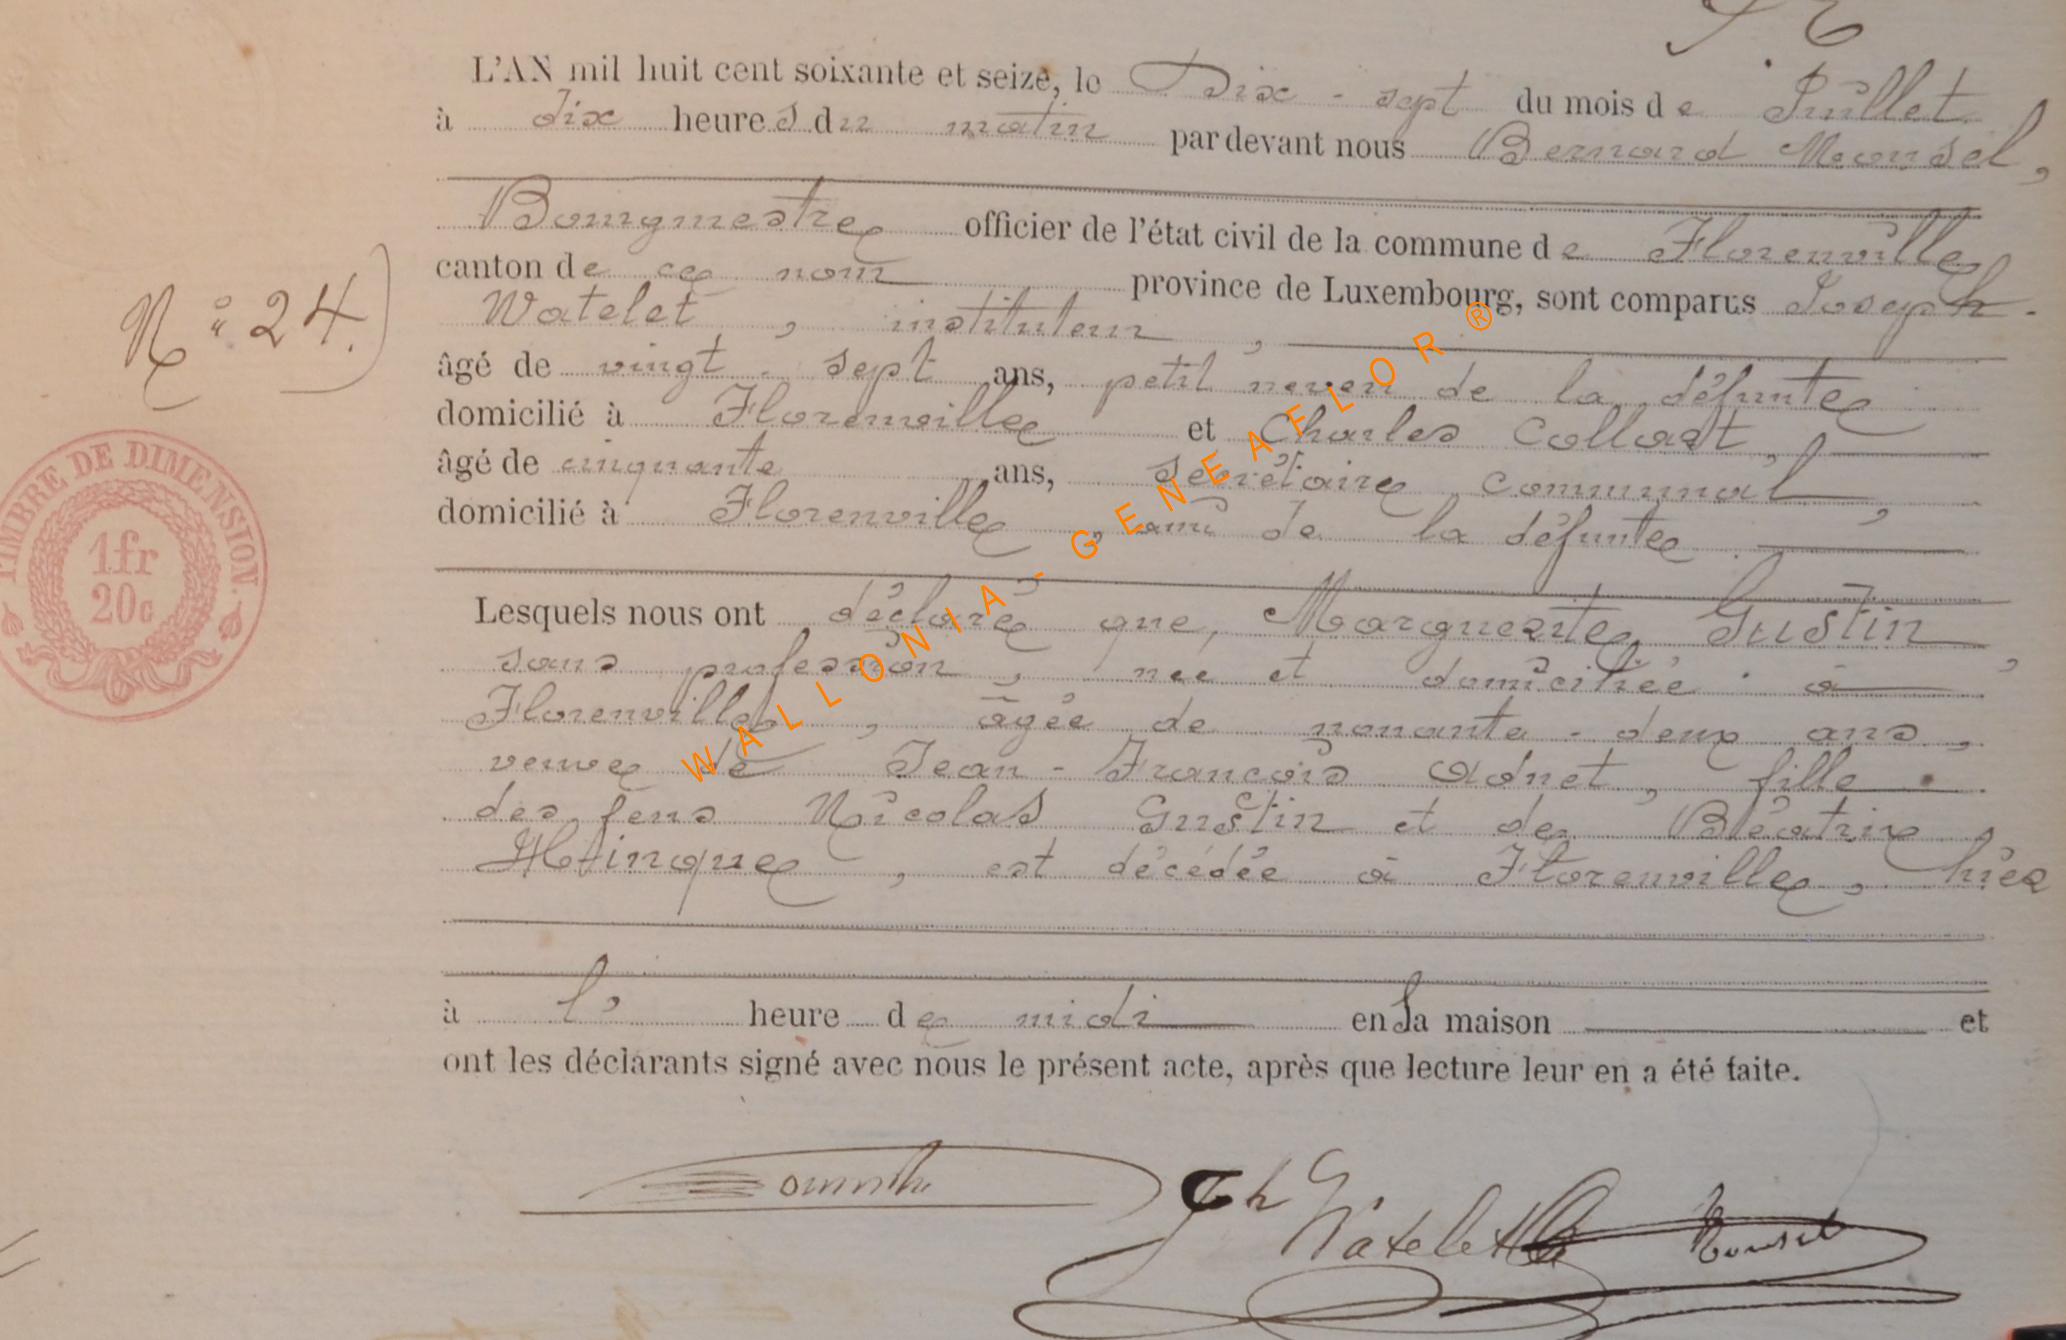 L'AN mil huit cent soixante et seize, le Dix-sept du mois de Juillet
à dix heures du matin par devant nous Bernard Mounsel,
Bourgmestre officier de l'état civil de la commune de Florenville
canton de ce nom province de Luxembourg, sont comparus Joseph
Watelet, instituteur,
N° 24.)
âgé de vingt-sept ans, petit neveu de la défunte
domicilié à Florenville et Charles Collart,
âgé de cinquante ans, secrétaire communal,
domicilié à Florenville, ami de la défunte.
Lesquels nous ont déclaré que, Marguerite Gustin,
sans profession, née et domiciliée à
Florenville, âgée de nonante-deux ans,
veuve de Jean-François Adnet, fille
des feus Nicolas Gustin et de Béatrix
est décédée à Florenville, hier
à l' heure de midi en sa maison et
ont les déclarants signé avec nous le présent acte, après que lecture leur en a été faite.
TIMBRE DE DIMENSION.
1fr
20c
Jh Watelet
WALLONIA-GENEAFLOR®